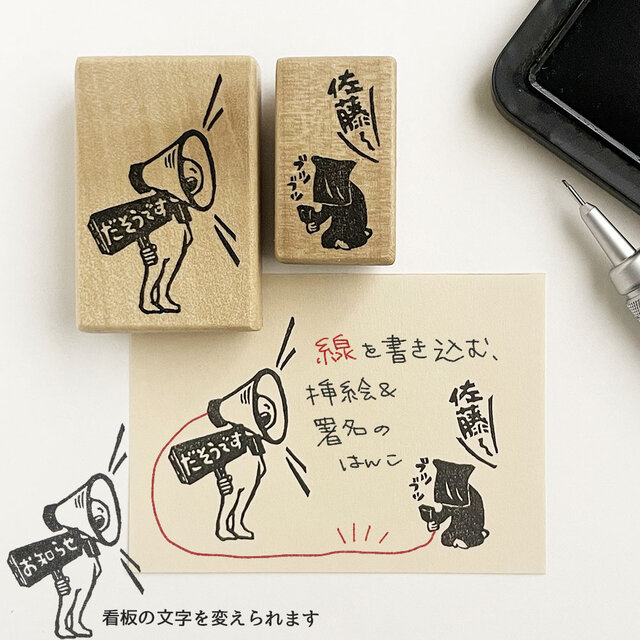 だそうです
佐藤〜
ブツブツ
線を書き込む、
挿絵&
署名の
はんこ
だそうです
佐藤〜
ブツブツ
お知らせ
看板の文字を変えられます